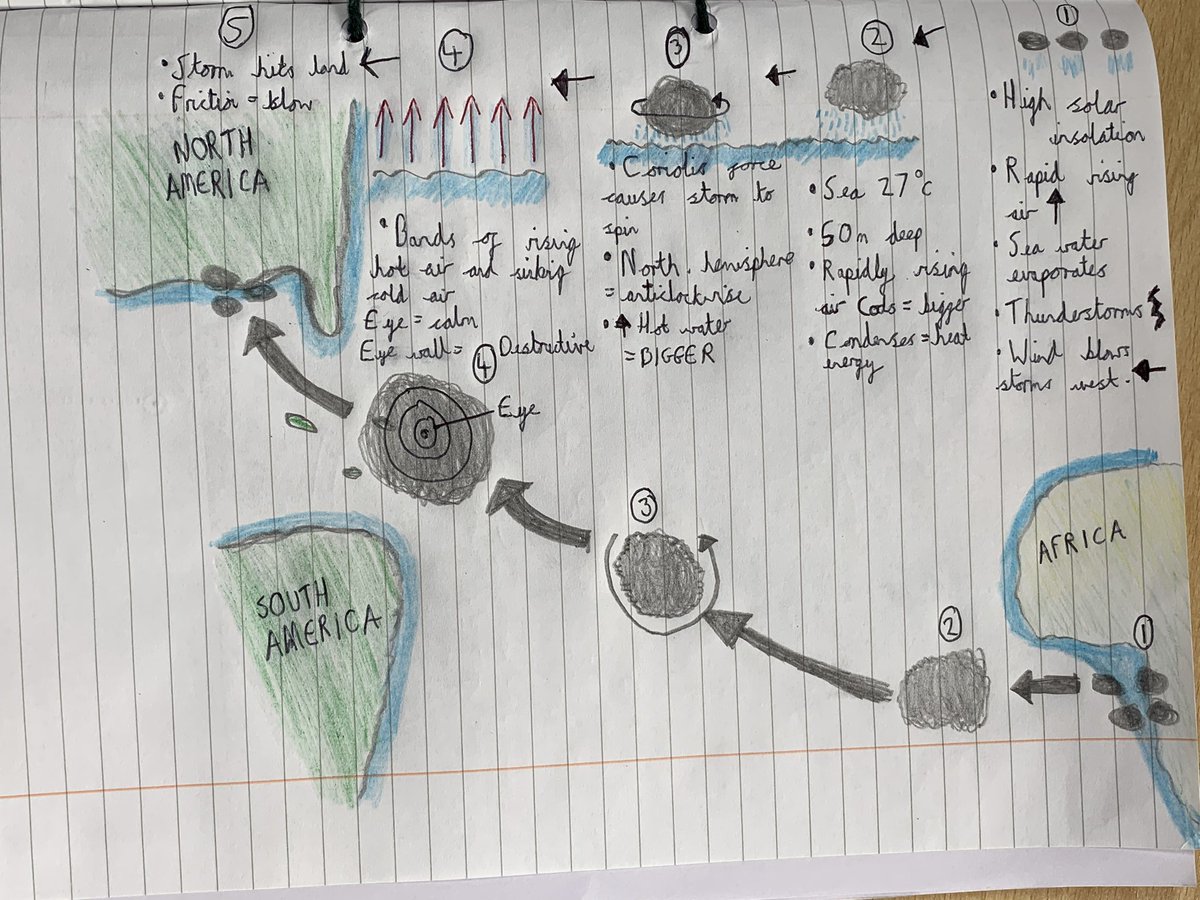 ①
• High solar
insolation
• Rapid rising
air
• Sea water
evaporates
• Thunderstorms
• Wind blows
storms west.
②
• Sea 27°c
• 50m deep
• Rapidly rising
air Cools = bigger
• Condenses = heat
energy
③
• Coriolis force
causes storm to
spin
• North. hemisphere
= anticlockwise
• Hot water
= BIGGER
④
• Bands of rising
hot air and sinking
cold air
Eye = calm
Eye wall = Destructive
⑤
• Storm hits land
• Friction = slow
NORTH
AMERICA
④
Eye
③
②
①
AFRICA
SOUTH
AMERICA